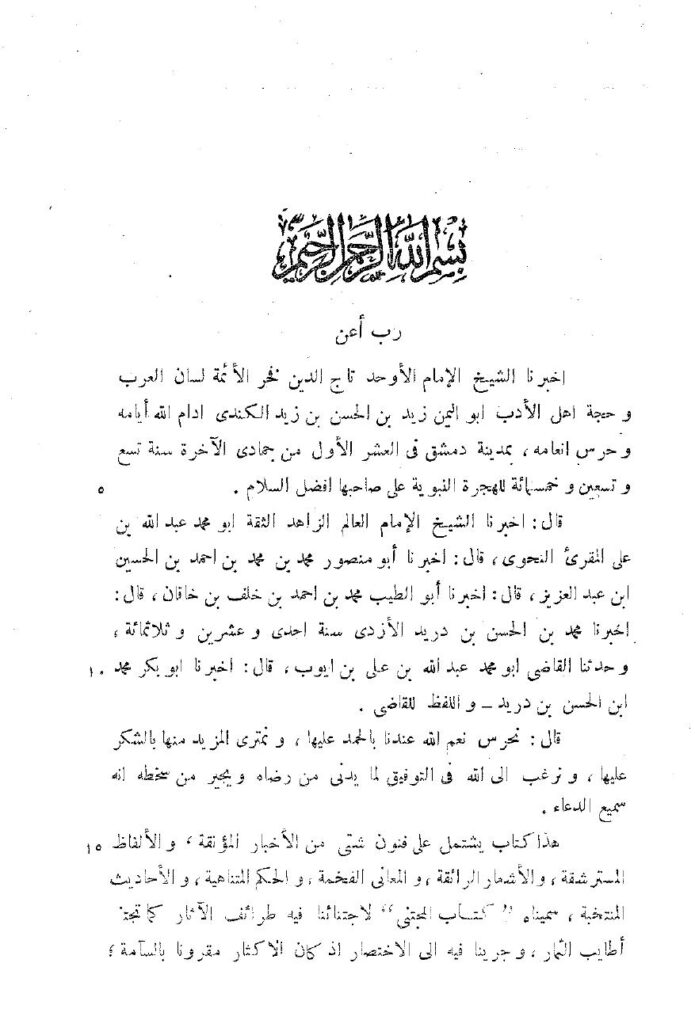 بسم الله الرحمن الرحيم
رب أعن
اخبرنا الشيخ الإمام الأوحد تاج الدين فخر الأئمة لسان العرب
و حجة اهل الأدب ابو اليمن زيد بن الحسن بن زيد الكندى ادام الله أيامه
و حرس انعامه ، بمدينة دمشق فى العشر الأول من جمادى الآخرة سنة تسع
و تسعين و خمسمائة للهجرة النبوية على صاحبها افضل السلام . ٥
قال : اخبرنا الشيخ الإمام العالم الزاهد الثقة ابو محمد عبد الله بن
على المقرئ النحوى ، قال : اخبرنا أبو منصور محمد بن محمد بن احمد بن الحسين
ابن عبد العزيز ، قال : اخبرنا أبو الطيب محمد بن احمد بن خلف بن خاقان ، قال :
اخبرنا محمد بن الحسن بن دريد الأزدى سنة احدى و عشرين و ثلاثمائة ،
و حدثنا القاضى ابو محمد عبد الله بن على بن ايوب ، قال : اخبرنا ابو بكر محمد ١٠
ابن الحسن بن دريد ــ و اللفظ للقاضى .
قال : نحرس نعم الله عندنا بالحمد عليها ، و نمترى المزيد منها بالشكر
عليها ، و نرغب الى الله فى التوفيق لما يدنى من رضاه و يجير من سخطه انه
سميع الدعاء .
هذا كتاب يشتمل على فنون شتى من الأخبار المؤنقة ، و الألفاظ ١٥
المسترشقة ، و الأشعار الرائقة ، و المعانى الفخمة ، و الحكم المتناهية ، و الأحاديث
المنتخبة ، سميناه " كتاب المجتنى " لاجتنائنا فيه طرائف الآثار كما تجتنى
أطايب الثمار ، و جرينا فيه الى الاختصار اذ كان الاكثار مقرونا بالسآمة ؛